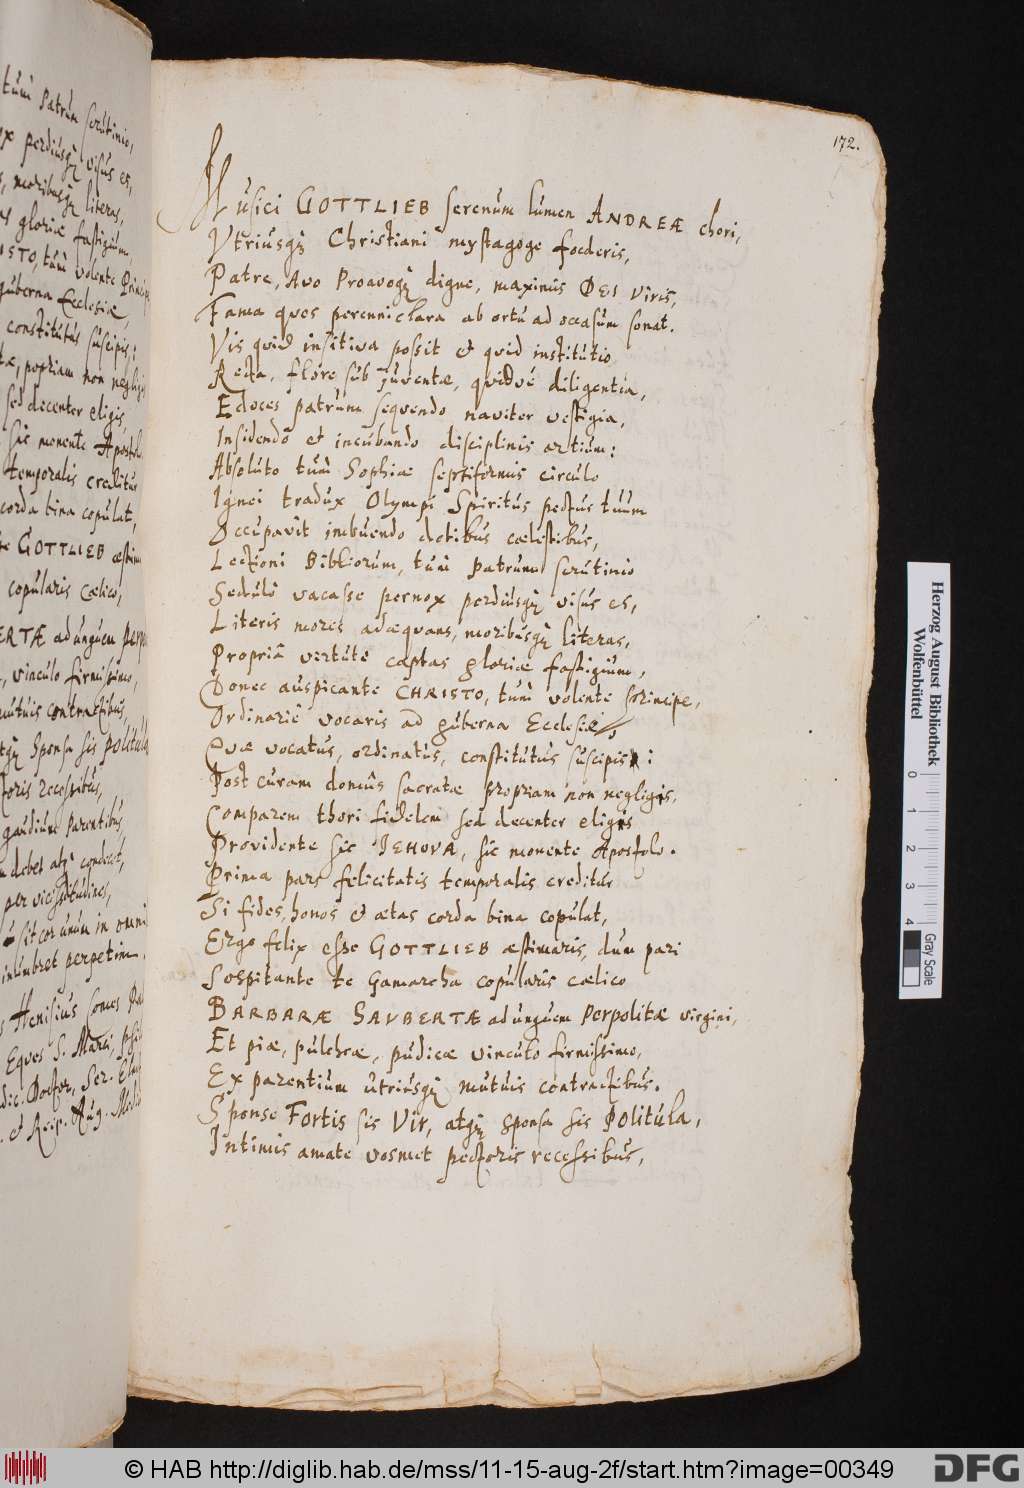 tùm Patrum scrutinio,
ox perdiusq₃ visus es,
s, moribusq₃ literas,
as gloriæ fastigium,
ISTO, tùm volente Princip
guberna Ecclesiæ,
constitutus suscipis:
tæ, propriam non neglig
sed decenter eligis,
sic monente Apostol
temporalis creditur
corda bina copulat,
GOTTLIEB æstim
copularis Cœlico,
ERTÆ ad unguem perp
, vinculo firmissimo,
mutuis contractibus,
tq₃ Sponsa sis politula
toris recessibus,
gaudium Parentibus,
debet atq₃ condecet,
per vicissitudines,
sit cor unum in omni
inumbret perpetim.
Henisius Comes Pal
Eques S. Marci, Phil
dic. Doctor, Ser. Elect
et Reip. Aug. Medic
172.
Musici GOTTLIEB serenum lumen ANDREÆ chori,
Vtriusq₃ Christiani mystagoge foederis,
Patre, Avo Proavoq₃ digne, maximis DEI viris,
Fama quos perenni clara ab ortu ad occasum sonat.
Vis quid insitiva possit et quid institutio
Recta, flore sub Juventæ, quidvé diligentia,
Edoces patrum sequendo naviter vestigia,
Insidendo et incubando disciplinis artium:
Absoluto tùm Sophiæ septiformis circulo
Ignei tradux Olympi Spiritus pectus tuum
Occupavit imbuendo dotibus cœlestibus,
Lectioni Bibliorum, tùm Patrum scrutinio
Sedulò vacasse pernox perdiusq₃ visus es,
Literis mores adæquans, moribusq₃ literas,
Propriâ virtute captas gloriæ fastigium,
Donec auspicante CHRISTO, tùm volente Principe,
Ordinariè vocaris ad guberna Ecclesiæ,
Quæ vocatus, ordinatus, constitutus suscipis:
Post curam domûs sacratæ propriam non negligis,
Comparem thori fidelem sed decenter eligis
Providente sic JEHOVA, sic monente Apostolo.
Prima pars felicitatis temporalis creditur
Si fides, honos et ætas corda bina copulat,
Ergo felix esse GOTTLIEB æstimaris, dum pari
Sospitante te Gamarcha copularis cælico
BARBARÆ SAVBERTÆ ad unguem Perpolitæ virgini,
Et piæ, pulchræ, pudicæ vinculo firmissimo,
Ex parentium utriusq₃ mutuis contractibus.
Sponse Fortis sis Vir, atq₃ Sponsa sis Politula,
Intimis amate vosmet pectoris recessibus,
Herzog August Bibliothek
Wolfenbüttel
0 1 2 3 4
Gray Scale
© HAB http://diglib.hab.de/mss/11-15-aug-2f/start.htm?image=00349
DFG